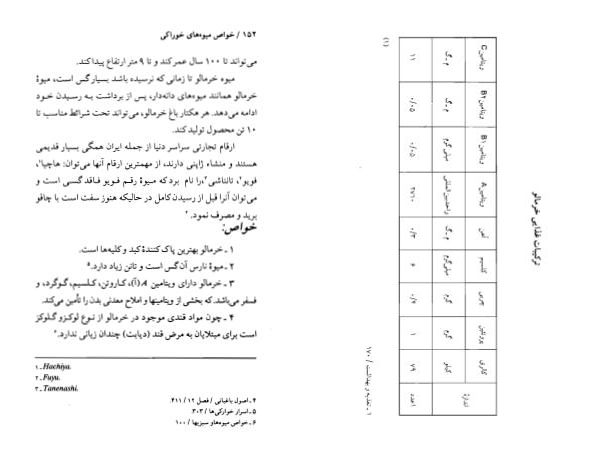 ۱۵۲ / خواص میوه‌های خوراکی
می‌تواند تا ۱۰۰ سال عمر کند و تا ۹ متر ارتفاع پیدا کند.
میوه خرمالو تا زمانی که نرسیده باشد بسیار گس است، میوهٔ
خرمالو همانند میوه‌های دانه‌دار، پس از برداشت به رسیدن خود
ادامه می‌دهد. هر هکتار باغ خرمالو، می‌تواند تحت شرائط مناسب تا
۱۰ تن محصول تولید کند.
ارقام تجارتی سراسر دنیا از جمله ایران همگی بسیار قدیمی
هستند و منشاء ژاپنی دارند، از مهمترین ارقام آنها می‌توان: هاچیا۱،
فویو۲، تانناشی۳، را نام برد که میوهٔ رقم فویو فاقد گسی است و
می‌توان آنرا قبل از رسیدن کامل در حالیکه هنوز سفت است با چاقو
برید و مصرف نمود.۴
خواص:
۱ ـ خرمالو بهترین پاک کنندهٔ کبد و کلیه‌ها است.
۲ ـ میوهٔ نارس آن گس است و تانن زیاد دارد.۵
۳ ـ خرمالو دارای ویتامین A (آ)، کاروتن، کلسیم، گوگرد، و
فسفر می‌باشد. که بخشی از ویتامینها و املاح معدنی بدن را تأمین می‌کند.
۴ ـ چون مواد قندی موجود در خرمالو از نوع لوکزو گلوکز
است برای مبتلایان به مرض قند (دیابت) چندان زیانی ندارد.۶
۱ ـ Hachiya.
۲ ـ Fuyu.
۳ ـ Tanenashi.
۴ ـ اصول باغبانی / فصل ۱۲ / ۴۱۱
۵ ـ اسرار خوراکی‌ها / ۳۰۳
۶ ـ خواص میوه‌ها و سبزیها / ۱۰۰
ترکیبات غذایی خرمالو
اندازه کالری پروتئین چربی کلسیم آهن ویتامین A ویتامین B۱ ویتامین B۲ ویتامین C
کیلو گرم گرم میلی‌گرم م ـ گ واحد بین‌المللی میلی گرم م ـ گ م ـ گ
۱ عدد ۷۹ ۱ ۰/۷ ۶ ۰/۳ ۲۷۱۰ ۰/۰۵ ۰/۰۵ ۱۱
(۱)
۱ ـ تغذیه و بهداشت / ۱۷۰